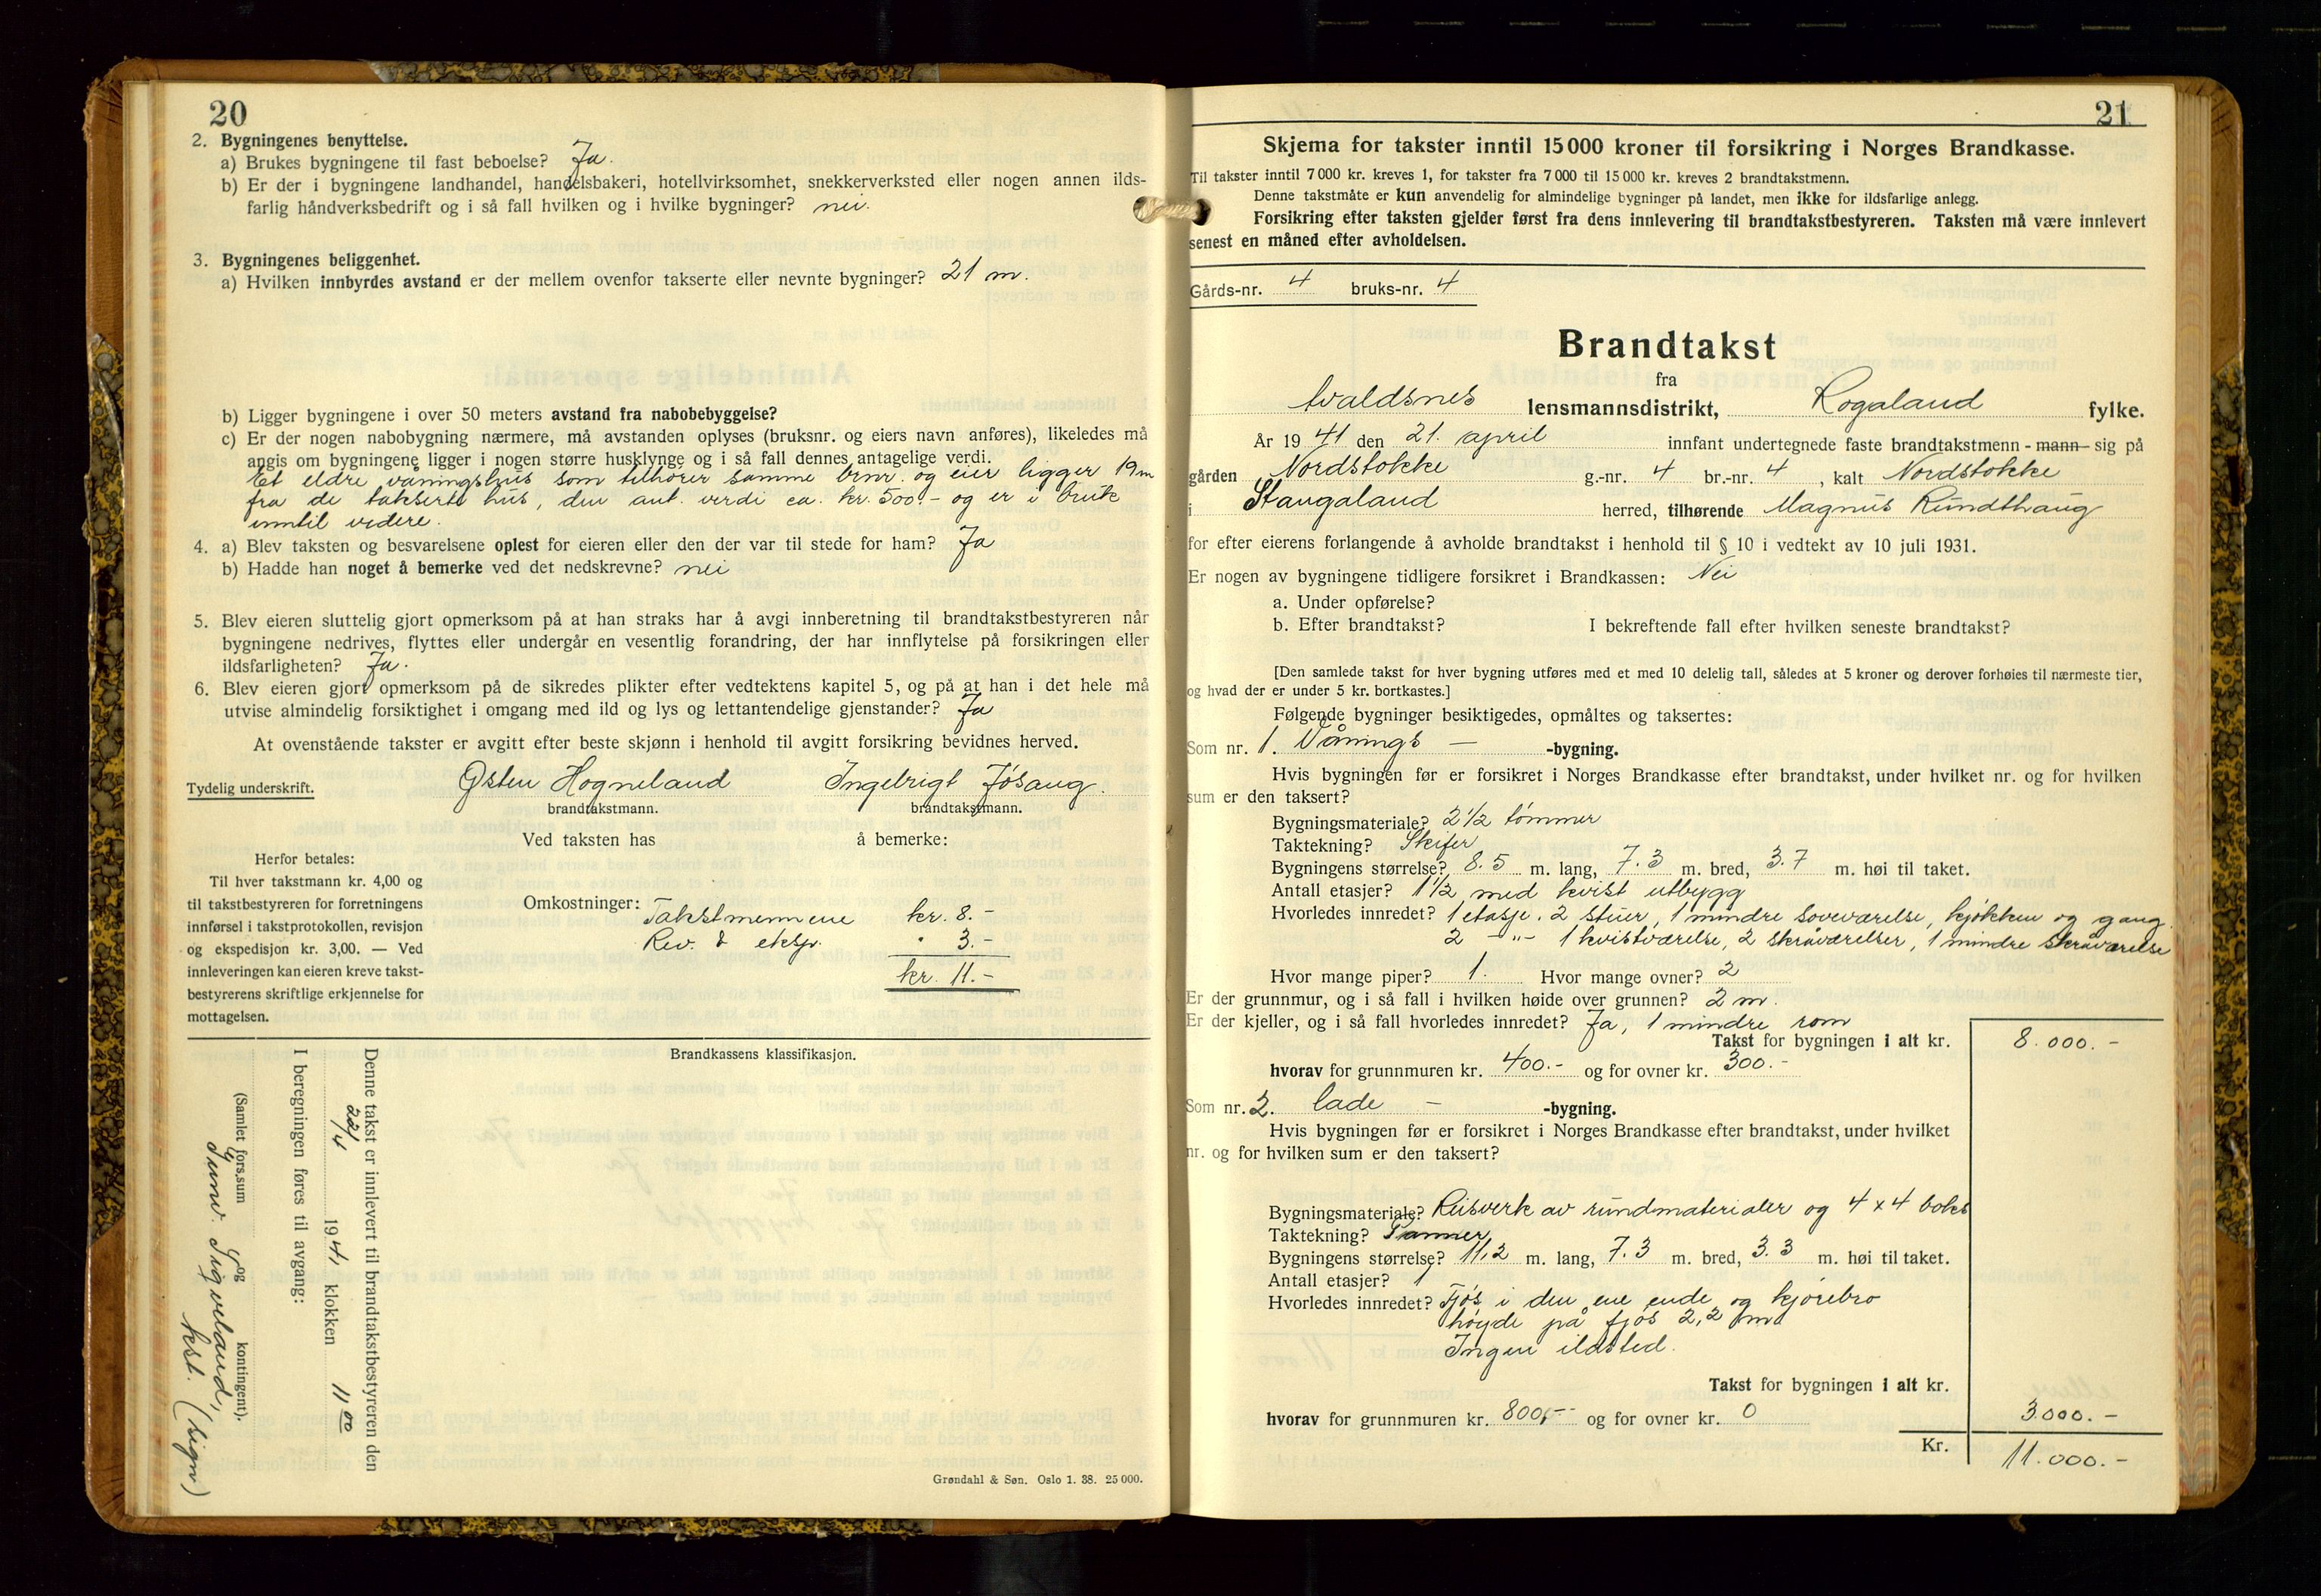 20
2. Bygningenes benyttelse.
a) Brukes bygningene til fast beboelse? Ja.
b) Er der i bygningene landhandel, handelsbakeri, hotellvirksomhet, snekkerverksted eller nogen annen ilds-
farlig håndverksbedrift og i så fall hvilken og i hvilke bygninger? nei.
3. Bygningenes beliggenhet.
a) Hvilken innbyrdes avstand er der mellem ovenfor takserte eller nevnte bygninger? 21 m.
b) Ligger bygningene i over 50 meters avstand fra nabobebyggelse?
c) Er der nogen nabobygning nærmere, må avstanden oplyses (bruksnr. og eiers navn anføres), likeledes må
angis om bygningene ligger i nogen større husklynge og i så fall dennes antagelige verdi.
Et eldre våningshus som tilhører samme brnr. og eier ligger 19 m
fra de takserte hus, den ant. verdi ca. kr. 500,- og er i bruk
inntil videre.
4. a) Blev taksten og besvarelsene oplest for eieren eller den der var til stede for ham? Ja
b) Hadde han noget å bemerke ved det nedskrevne? nei
5. Blev eieren sluttelig gjort opmerksom på at han straks har å avgi innberetning til brandtakstbestyreren når
bygningene nedrives, flyttes eller undergår en vesentlig forandring, der har innflytelse på forsikringen eller
ildsfarligheten? Ja.
6. Blev eieren gjort opmerksom på de sikredes plikter efter vedtektens kapitel 5, og på at han i det hele må
utvise almindelig forsiktighet i omgang med ild og lys og lettantendelige gjenstander? Ja
At ovenstående takster er avgitt efter beste skjønn i henhold til avgitt forsikring bevidnes herved.
Tydelig underskrift. Østen Hogneland Ingebrigt Jösang.
brandtakstmann. brandtakstmann.
Ved taksten has å bemerke:
Herfor betales:
Til hver takstmann kr. 4,00 og
til takstbestyreren for forretningens
innførsel i takstprotokollen, revisjon
og ekspedisjon kr. 3,00. — Ved
innleveringen kan eieren kreve takst-
bestyrerens skriftlige erkjennelse for
mottagelsen.
Omkostninger: Takstmennene kr. 8.-
Rev. & eksp. " 3.-
kr. 11.-
Brandkassens klassifikasjon.
Denne takst er innlevert til brandtakstbestyreren den
22/4 1941 klokken 11 00
I beregningen føres til avgang:
(Samlet fors.sum og kontingent).
Sigveland,
(sign)
Grøndahl & Søn. Oslo 1. 38. 25 000.
21
Skjema for takster inntil 15 000 kroner til forsikring i Norges Brandkasse.
Til takster inntil 7 000 kr. kreves 1, for takster fra 7 000 til 15 000 kr. kreves 2 brandtakstmenn.
Denne takstmåte er kun anvendelig for almindelige bygninger på landet, men ikke for ildsfarlige anlegg.
Forsikring efter taksten gjelder først fra dens innlevering til brandtakstbestyreren. Taksten må være innlevert
senest en måned efter avholdelsen.
Gårds-nr. 4 bruks-nr. 4
Brandtakst
fra
Avaldsnes lensmannsdistrikt, Rogaland fylke.
År 1941 den 21. april innfant undertegnede faste brandtakstmenn - mann - sig på
gården Nordstokke g.-nr. 4 br.-nr. 4, kalt Nordstokke
i Stangaland herred, tilhørende Magnus Rundthaug
for efter eierens forlangende å avholde brandtakst i henhold til § 10 i vedtekt av 10 juli 1931.
Er nogen av bygningene tidligere forsikret i Brandkassen: Nei
a. Under opførelse?
b. Efter brandtakst? I bekreftende fall efter hvilken seneste brandtakst?
[Den samlede takst for hver bygning utføres med et med 10 delelig tall, således at 5 kroner og derover forhøies til nærmeste tier,
og hvad der er under 5 kr. bortkastes.]
Følgende bygninger besiktigedes, opmåltes og taksertes:
Som nr. 1. Vånings — -bygning.
Hvis bygningen før er forsikret i Norges Brandkasse efter brandtakst, under hvilket nr. og for hvilken
sum er den taksert?
Bygningsmateriale? 2 1/2 tömmer
Taktekning? Skifer
Bygningens størrelse? 8.5 m. lang, 7.3 m. bred, 3.7 m. høi til taket.
Antall etasjer? 1 1/2 med kvist utbygg
Hvorledes innredet? 1 etasje. 2 stuer, 1 mindre soveværelse, kjøkken og gang
2 - " - 1 kvistværelse, 2 skråværelser, 1 mindre skråværelse
Hvor mange piper? 1. Hvor mange ovner? 2
Er der grunnmur, og i så fall i hvilken høide over grunnen? 2 m.
Er der kjeller, og i så fall hvorledes innredet? Ja, 1 mindre rom
Takst for bygningen i alt kr. 8.000.-
hvorav for grunnmuren kr. 400.- og for ovner kr. 300.-
Som nr. 2. lade — -bygning.
Hvis bygningen før er forsikret i Norges Brandkasse efter brandtakst, under hvilket
nr. og for hvilken sum er den taksert?
Bygningsmateriale? Reisverk av rundmaterialer og 4 x 4 boks
Taktekning? Panner,
Bygningens størrelse? 11,2 m. lang, 7.3 m. bred, 3.3 m. høi til taket.
Antall etasjer? 1
Hvorledes innredet? Fjös i den ene ende og kjørebro
høyde på fjös 2,2 m
Ingen ildsted.
Takst for bygningen i alt kr.
hvorav for grunnmuren kr. 800,-- og for ovner kr. 0 3.000.-
Kr. 11.000.-